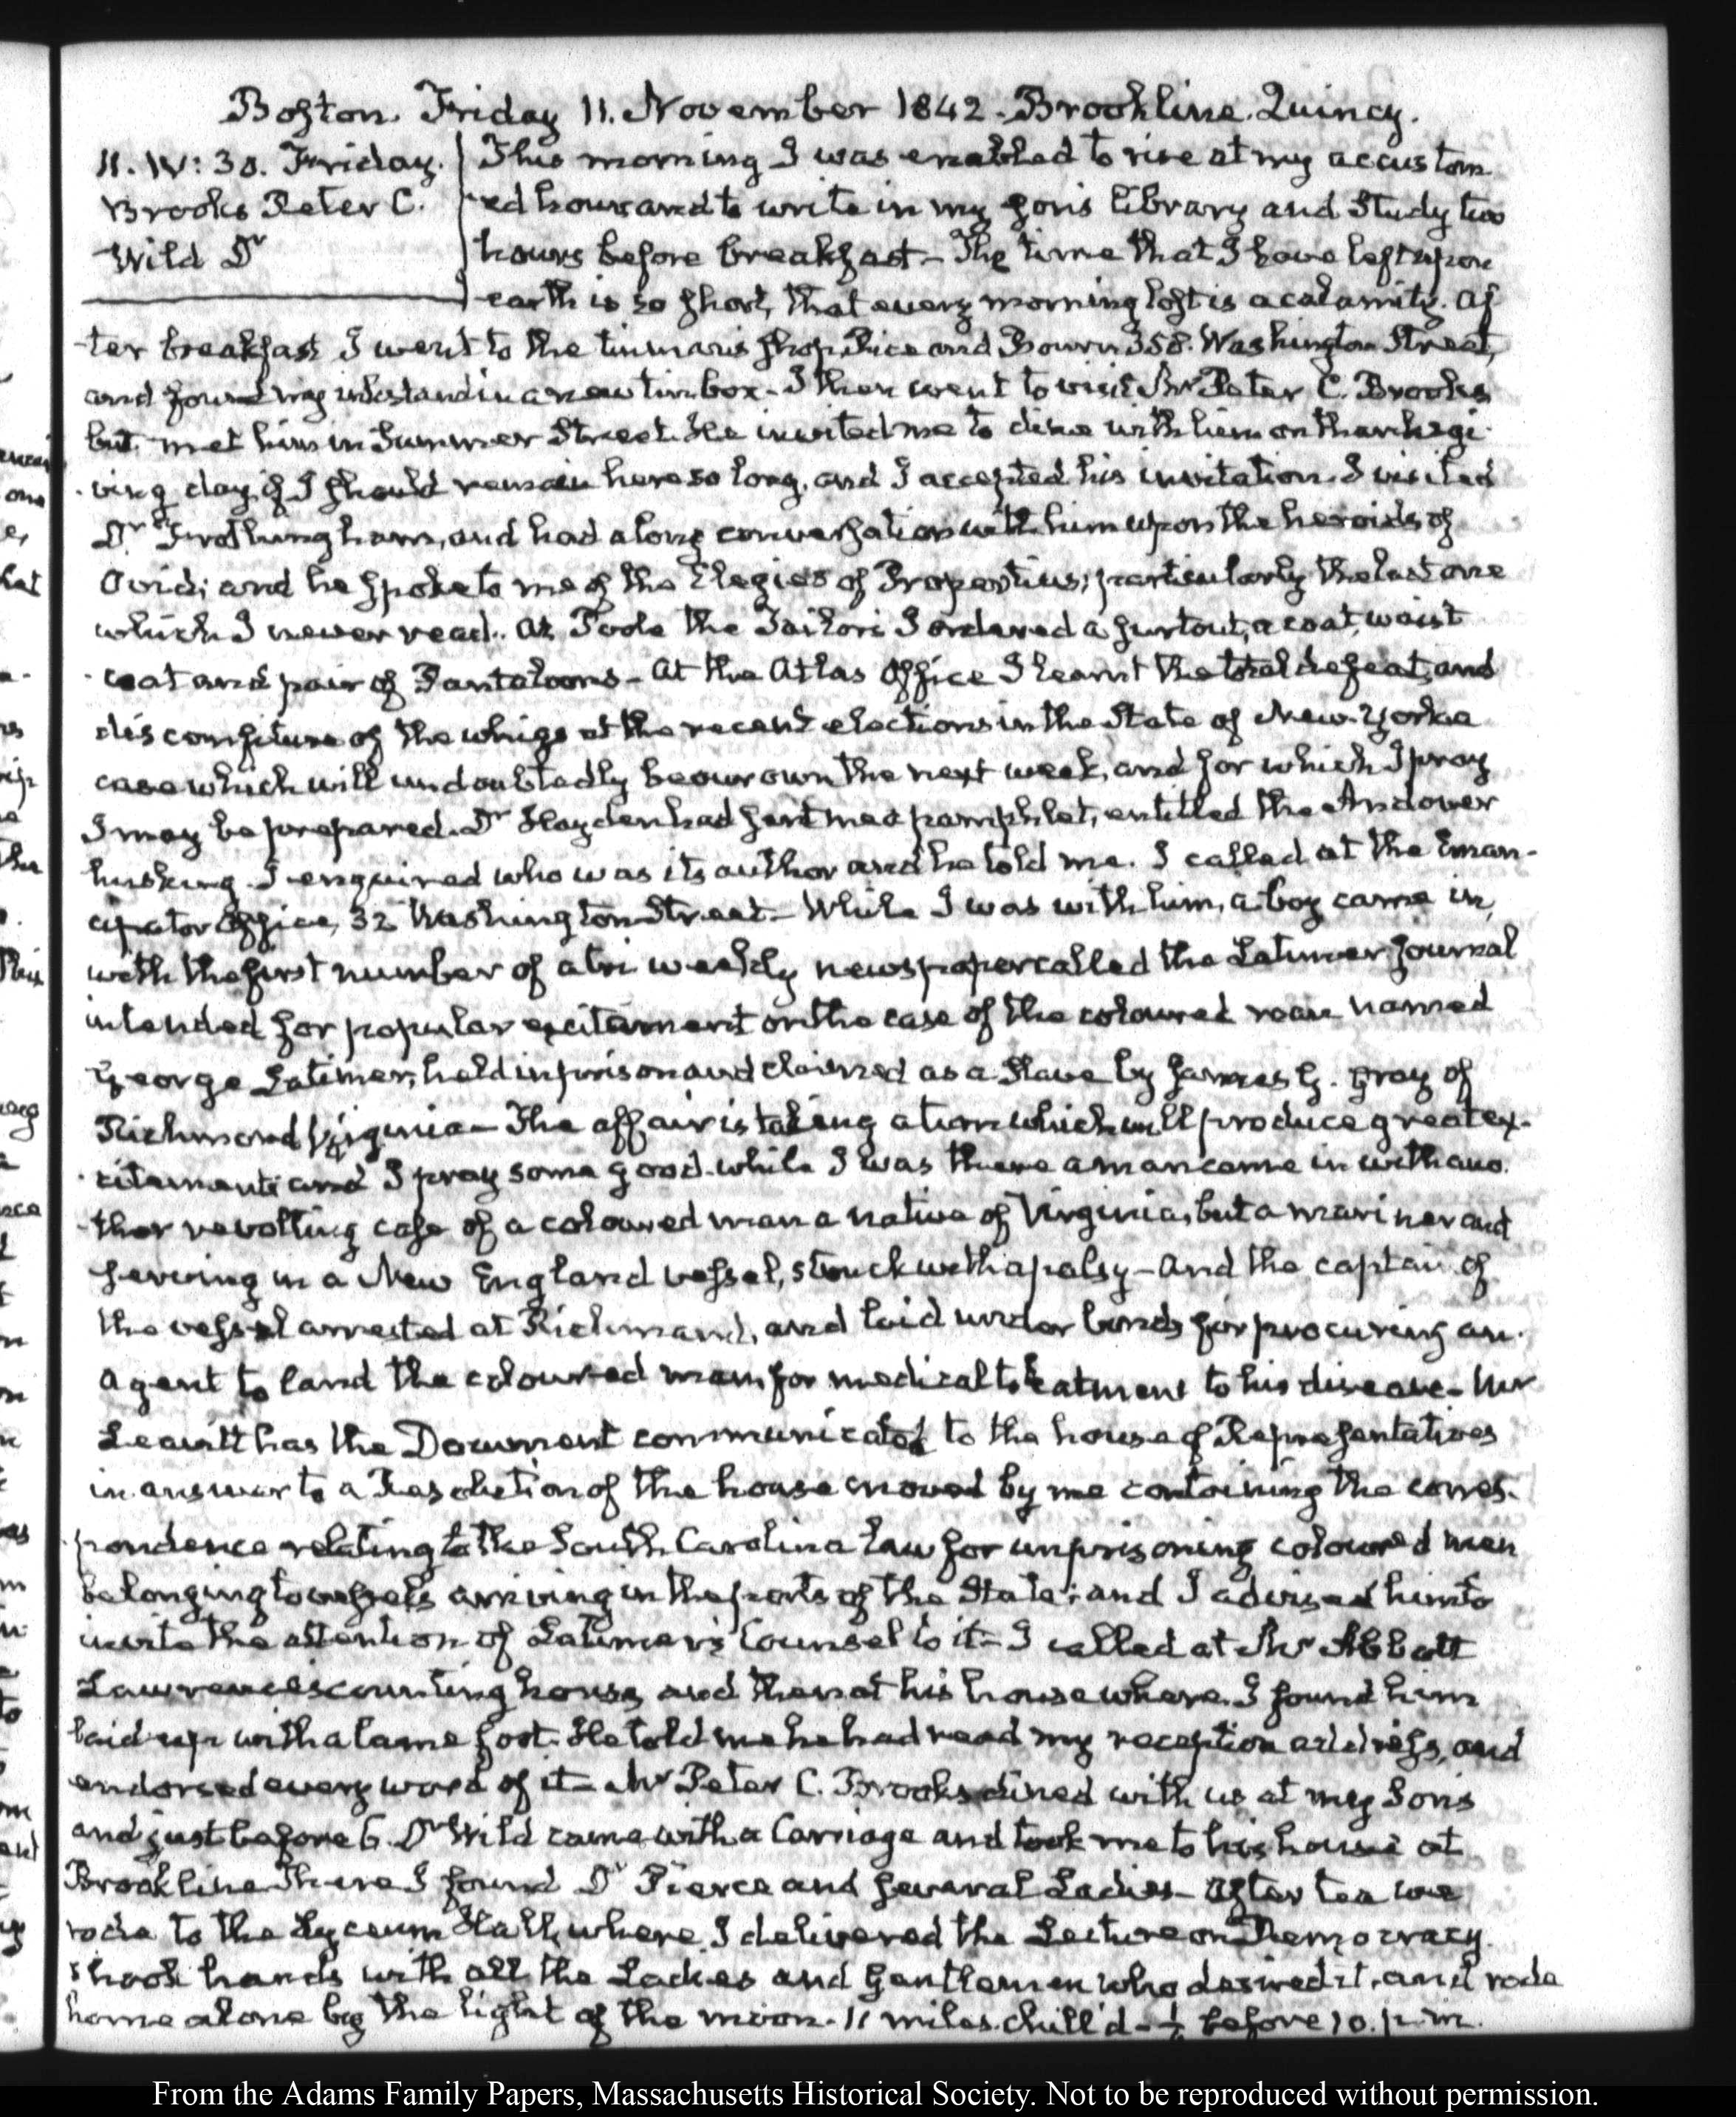 Boston. Friday 11. November 1842. Brookline. Quincy.
11. IV: 30. Friday.
Brooks Peter C.
Wild Dr
This morning I was enabled to rise at my accustom
ed hour and to write in my son's library and Study two
hours before breakfast – The time that I have left upon
earth is so short, that every morning lost is a calamity. Af
-ter breakfast I went to the tinman's shop Rice and Bowen 358. Washington Street,
and found my inkstand in a new tin box – I then went to visit Mr Peter C. Brooks
but met him in Summer Street. He invited me to dine with him on thanksgi-
-ving day if I should remain here so long, and I accepted his invitation. I visited
Dr Frothingham, and had a long conversation with him upon the heroids of
Ovid; and he spoke to me of the Elegies of Propertius; particularly the last one
which I never read. At Poole the Tailor's I ordered a surtout, a coat, waist
-coat and pair of Pantaloons – At the Atlas Office I learnt the total defeat, and
discomfiture of the whigs at the recent elections in the State of New-York a
case which will undoubtedly be our own the next week, and for which I pray
I may be prepared. Dr Hayden had sent me a pamphlet, entitled the Andover
husking. I enquired who was its author and he told me. I called at the Eman-
cipator Office, 32 Washington Street – While I was with him, a boy came in,
with the first number of a tri weekly newspaper called the Latimer Journal
intended for popular excitement on the case of the coloured man named
George Latimer, held in prison and claimed as a Slave by James G. Gray of
Richmond Virginia – The affair is taking a turn which will produce great ex-
-citement and I pray some good. while I was there a man came in with ano-
-ther revolting case of a coloured man a native of Virginia, but a mariner and
serving in a New England vessel, struck with a palsy – and the captain of
the vessel arrested at Richmond, and laid under bonds for procuring an
agent to land the coloured man, for medical treatment to his disease – Mr
Leavitt has the Document communicated to the house of Representatives
in answer to a Resolution of the house moved by me containing the corres-
-pondence relating to the South Carolina law for imprisoning coloured men
belonging to vessels arriving in the ports of the State; and I advised him to
invite the attention of Latimer's Counsel to it – I called at Mr Abbott
Lawrence's counting house, and then at his house where I found him
laid up with a lame foot. He told me he had read my reception address, and
endorsed every word of it – Mr Peter C. Brooks dined with us at my Son's
and just before 6. Dr Wild came with a Carriage and took me to his house at
Brookline. There I found Dr Pierce and several Ladies – After tea we
rode to the Lyceum Hall, where I delivered the Lecture on Democracy.
shook hands with all the Ladies and Gentlemen who desired it, and rode
home alone by the light of the moon. 11 miles. chill'd – ½ before 10. p.m.
From the Adams Family Papers, Massachusetts Historical Society. Not to be reproduced without permission.